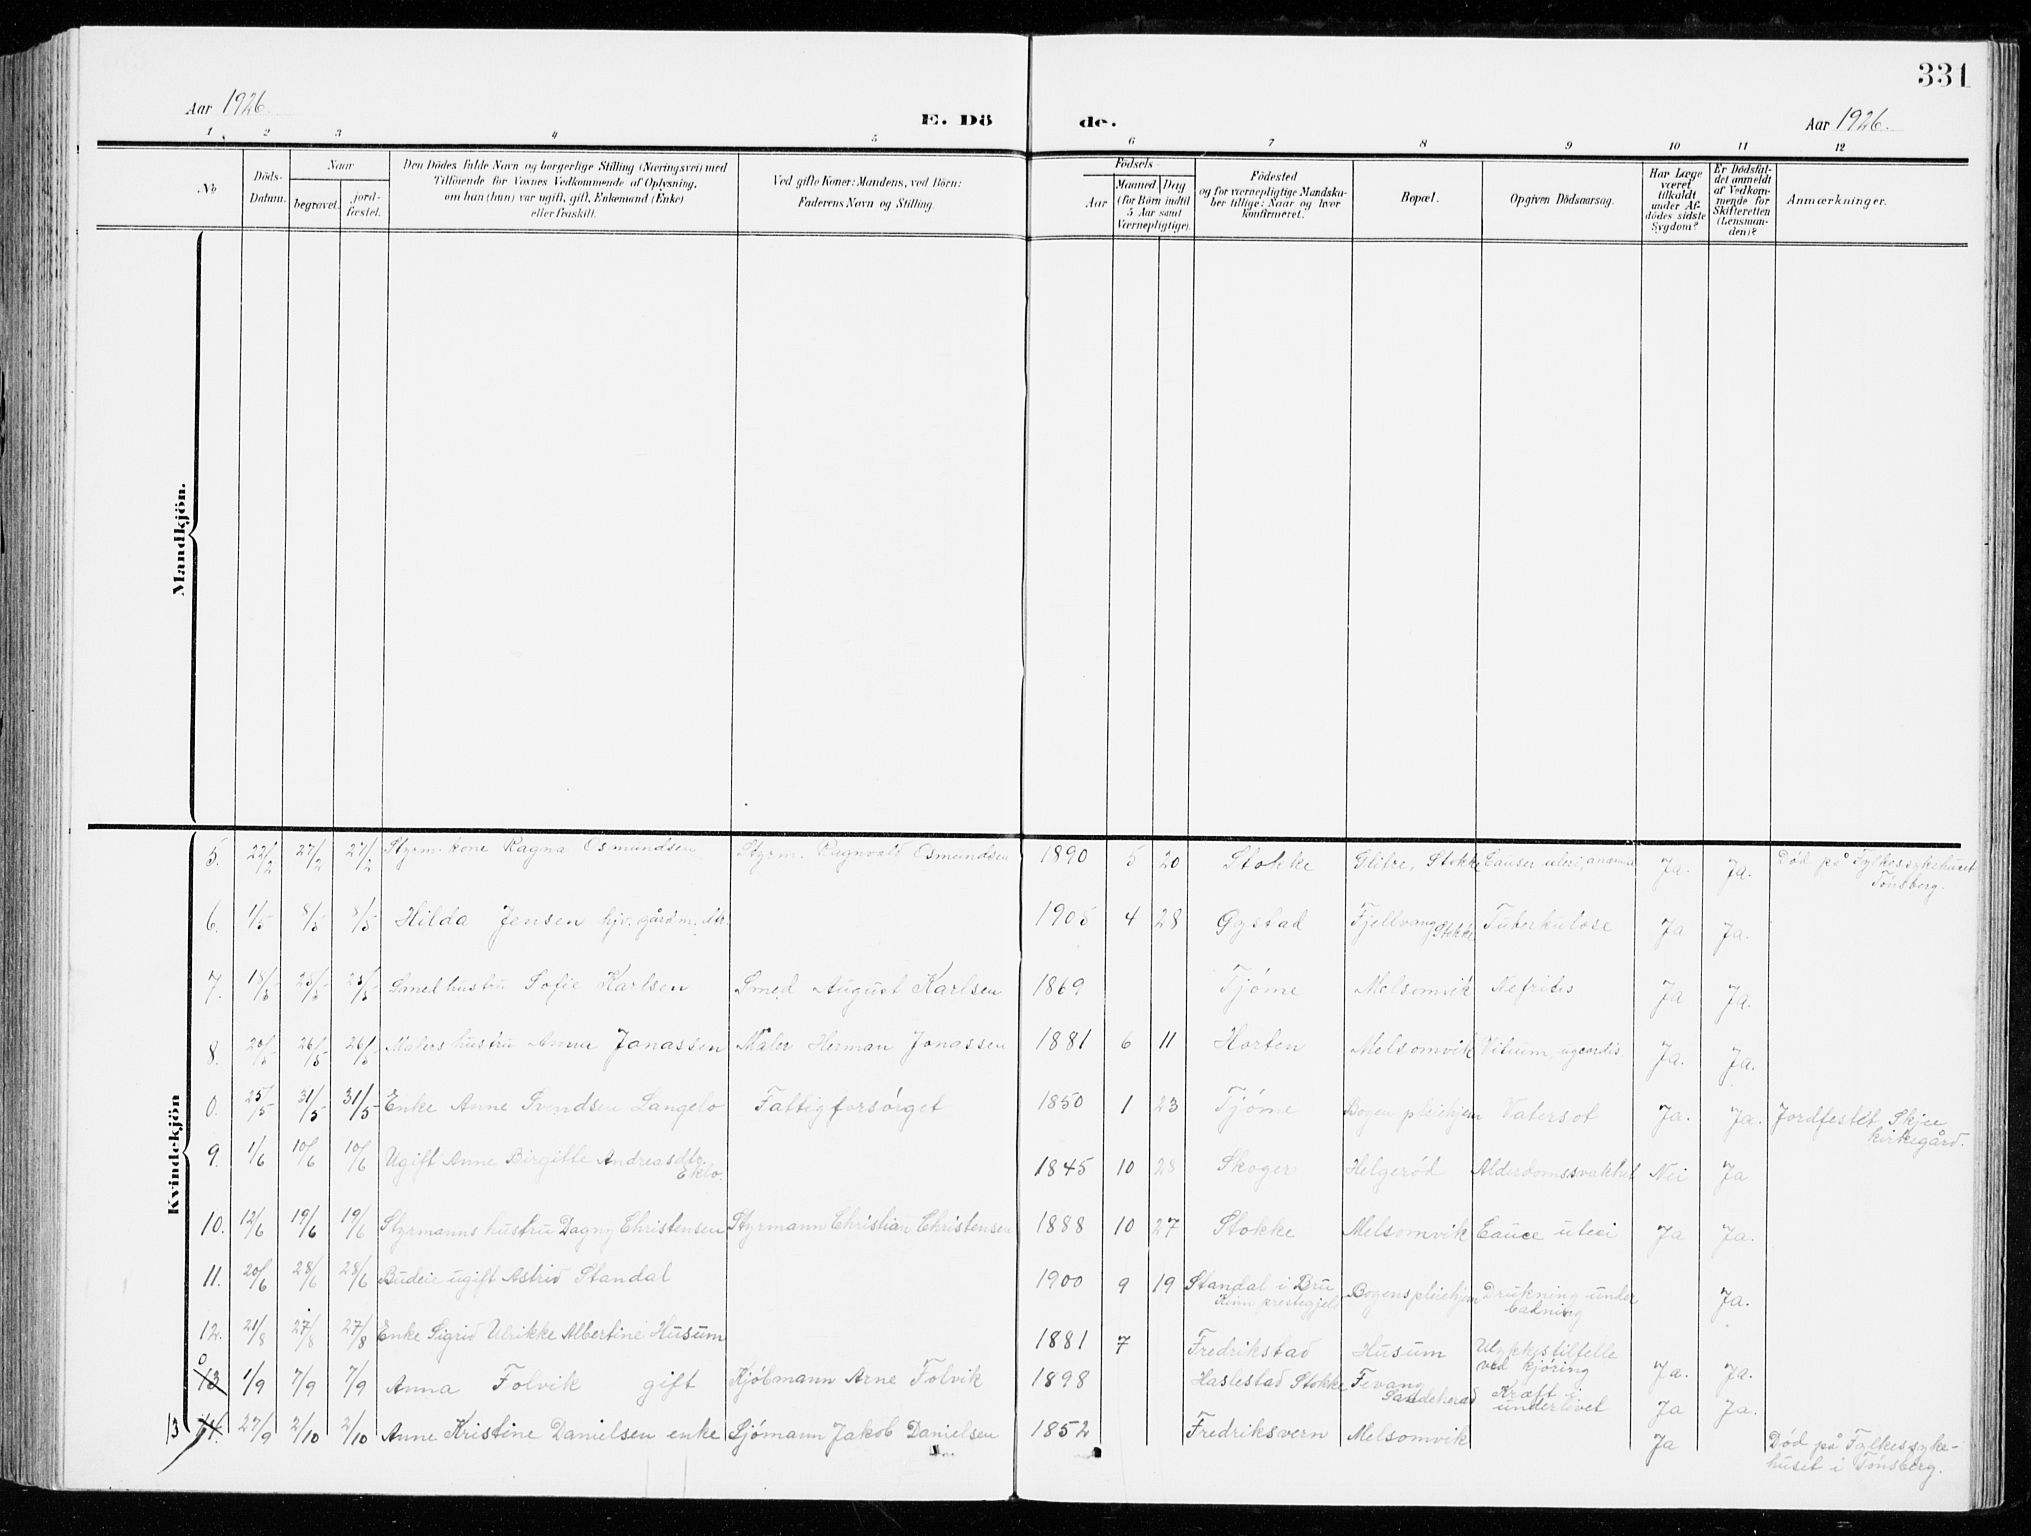 331
Aar 1926.
E. Dö de.
Aar 1926.
1 2 3 4 5 6 7 8 9 10 11 12
No
Döds-Datum.
Naar
begravet.
jord-fæstet.
Den Dödes fulde Navn og borgerlige Stilling (Næringsvei) med
Tilföiende for Voxnes Vedkommende af Oplysning,
om han (hun) var ugift, gift, Enkemand (Enke)
eller fraskilt.
Ved gifte Koner: Mandens, ved Börn:
Faderens Navn og Stilling.
Födsels-
Aar
Maaned Dag
(for Börn indtil
5 Aar samt
Værnepligtige).
Födested
og for værnepligtige Mandska-
ber tillige: Naar og hvor
konfirmeret.
Bopæl.
Opgiven Dödsaarsag.
Har Læge
været
tilkaldt
under Af-
dödes sidste
Sygdom?
Er Dödsfal-
det anmeldt
af Vedkom-
mende for
Skifteretten
(Lensman-
den)?
Anmærkninger.
Mandkjön.
Kvindekjön
5. 22/2 27/2 27/2 Styrm. kone Ragna Osmundsen Styrm. Ragnvald Osmundsen 1890 5 20 Stokke Glitre, Stokke Ja. Ja. Död på Fylkessykehuset
Tönsberg.
6. 1/5 8/5 8/5 Hilda Jensen gårdm. dtr. 1905 4 28 Gystad Fjellvang Stokke Tuberkulose Ja Ja.
7. 18/5 25/5 25/5 Smedhustru Sofie Karlsen Smed August Karlsen 1869 Tjöme Melsomvik Nefritis Ja Ja.
8. 20/5 26/5 26/5 Malers hustru Anna Jonassen Maler Herman Jonassen 1881 6 11 Horten Melsomvik Vitium Ja. Ja.
0. 25/5 31/5 31/5 Enke Anne Svendsen Langelo Fattigforsörget 1850 1 23 Tjöme Bogen pleiehjem Vatersot Ja. Ja. Jordfestet Skjee
kirkegård.
9. 1/6 10/6 10/6 Ugift Anne Birgitte Andreasdtr.
Eklo. 1845 10 28 Skoger Helgeröd Alderdomssvakhet Nei Ja
10. 12/6 19/6 19/6 Styrmanns hustru Dagny Christensen Styrmann Christian Christensen 1888 10 27 Stokke Melsomvik Cance uteri Ja Ja.
11. 20/6 28/6 28/6 Budeie ugift Astrid Standal 1900 9 19 Standal i Bru
Kinn prestegjeld Bogens pleiehjem Drukning under
badning Ja.
12. 21/8 27/8 27/8 Enke Sigrid Ulrikke Albertine Husum 1881 7 Fredrikstad Husum Ulykkestilfelle
ved kjöring Ja. Ja.
0
13 1/9 7/9 7/9 Anna Folvik gift Kjöbmann Arne Folvik 1898 Haslestad Stokke Fevang
Sandeherad Kræft i
underlivet Ja Ja.
13 14. 27/9 2/10 2/10 Anne Kristine Danielsen enke Sjömann Jakob Danielsen 1852 Fredriksvern Melsomvik Ja Död på Fylkessyke-
huset i Tönsberg.